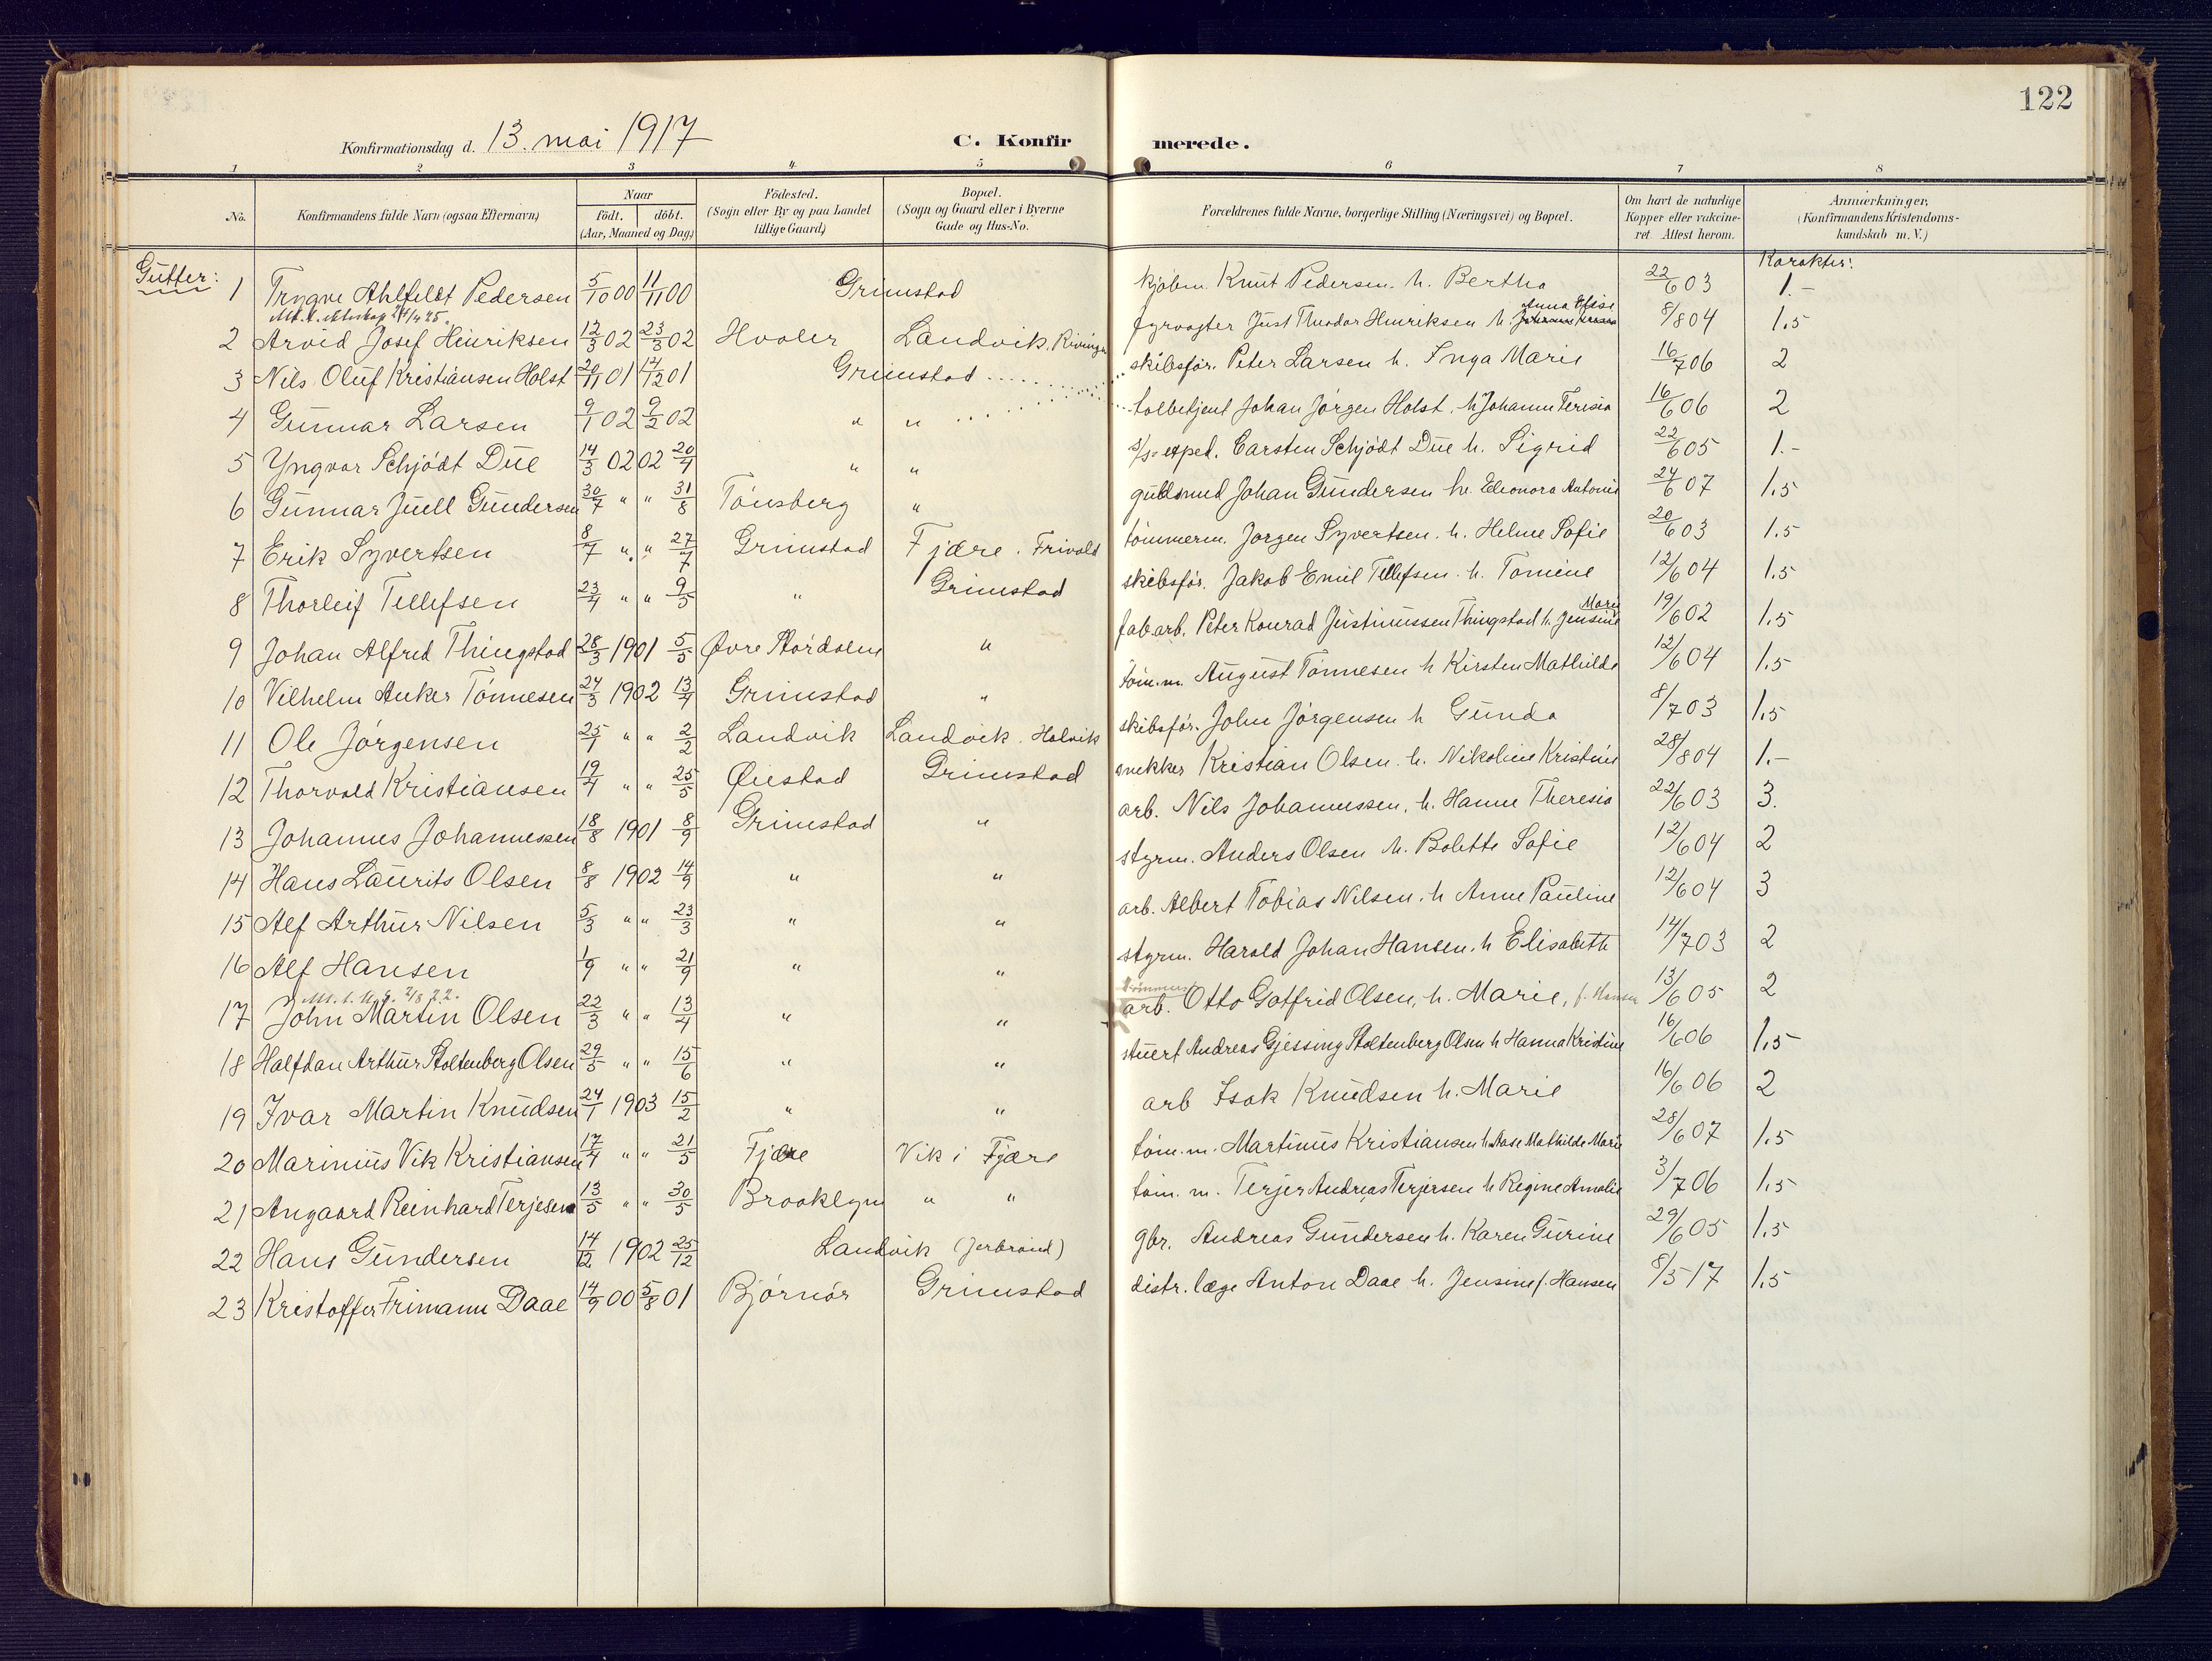 122
Konfirmationsdag d. 13. mai 1917 C. Konfirmerede.
1 2 3 4 5 6 7 8
No. Konfirmandens fulde Navn (ogsaa Efternavn) Naar födt. döbt. (Aar, Maaned og Dag) Födested. (Sogn eller By og paa Landet tillige Gaard) Bopæl. (Sogn og Gaard eller i Byerne Gade og Hus-No. Forældrenes fulde Navne, borgerlige Stilling (Næringsvei) og Bopæl. Om havt de naturlige Kopper eller vakcineret Attest herom. Anmærkninger. (Konfirmandens Kristendomskundskab m. V.)
Gutter: Karakter:
1 Trygve Ahlfeldt Pedersen 5/10 00 11/11 00 Grimstad kjøbm. Knut Pedersen. h. Bertha 22/6 03 1.-
2 Arvid Josef Henriksen 12/3 02 23/3 02 Hvaler Landvik. Rivingen fyrvogter Just Theodor Henriksen h. Anna Elise 8/8 04 1.5
3 Nils Oluf Kristiansen Holst 20/11 01 14/12 01 Grimstad skibsfør. Peter Larsen h. Inga Marie 16/7 06 2
4 Gunnar Larsen 9/1 02 9/2 02 " " tolbetjent Johan Jørgen Holst. h Johanne Teresia 16/6 06 2
5 Yngvar Schjødt Due 14/3 02 02 20/4 " " s/s-exped. Carsten Schjødt Due h. Sigrid 22/6 05 1.-
6 Gunnar Juell Gundersen 30/7 " " 31/8 Tønsberg " guldsmed Johan Gundersen h. Eleonora Antonie 24/6 07 1.5
7 Erik Syvertsen 8/7 " " 27/7 Grimstad Fjære. Frivold tømmerm. Jørgen Syvertsen. h. Helene Sofie 20/6 03 1.5
8 Thorleif Tellefsen 23/4 " " 9/5 " Grimstad skibsfør. Jakob Emil Tellefsen. h. Tomine 12/6 04 1.5
9 Johan Alfred Thingstad 28/3 1901 5/5 Øvre Størdalen " fab.arb. Peter Konrad Justinussen Thingstad h. Jensine Marie 19/6 02 1.5
10 Vilhelm Anker Tønnesen 24/3 1902 13/4 Grimstad " tøm.m. August Tønnesen h Kirsten Mathilde 12/6 04 1.5
11 Ole Jørgensen 25/1 " " 2/2 Landvik Landvik. Holvik skibsfør. John Jørgensen h Gunda 8/7 03 1.5
12 Thorvald Kristiansen 19/4 " " 25/5 Øiestad Grimstad snekker Kristian Olsen. h. Nikoline Kristine 28/8 04 1.-
13 Johannes Johannessen 18/8 1901 8/9 Grimstad " arb. Nils Johannessen, h. Hanne Theresia 22/6 03 3.
14 Hans Laurits Olsen 8/8 1902 14/9 " " styrm. Anders Olsen h. Bolette Sofie 12/6 04 2
15 Alf Arthur Nilsen 5/3 " " 23/3 " " arb. Albert Tobias Nilsen. h Anne Pauline 12/6 04 3
16 Alf Hansen 1/9 " " 21/9 " " styrm. Harald Johan Hansen. h Elisabeth 14/7 03 2
17 John Martin Olsen 22/3 " " 13/4 " " arb. Otto Gotfrid Olsen, h. Marie, f. Hansen 13/6 05 2
18 Halfdan Arthur Stoltenberg Olsen 29/5 " " 15/6 " " stuert Andreas Gjessing Stoltenberg Olsen h Hanna Kristine 16/6 06 1.5
19 Ivar Martin Knudsen 24/1 1903 15/2 " " arb Isak Knudsen h. Marie 16/6 06 2
20 Marinius Vik Kristiansen 17/4 " " 21/5 Fjære Vik i Fjære tøm.m. Martinus Kristiansen h. Aase Mathilde Marie 28/6 07 1.5
21 Angaard Reinhard Terjesen 13/5 " " 30/5 Brooklyn " " tøm. m. Terjer Andreas Terjersen h Regine Amalie 3/7 06 1.5
22 Hans Gundersen 14/12 1902 25/12 Landvik gbr. Andreas Gundersen h. Karen Gurine 29/6 05 1.5
23 Kristoffer Frimann Daae 14/9 00 5/8 01 Bjørnør Grimstad distr.læge Anton Daae h. Jensine f. Hansen 8/5 17 1.5